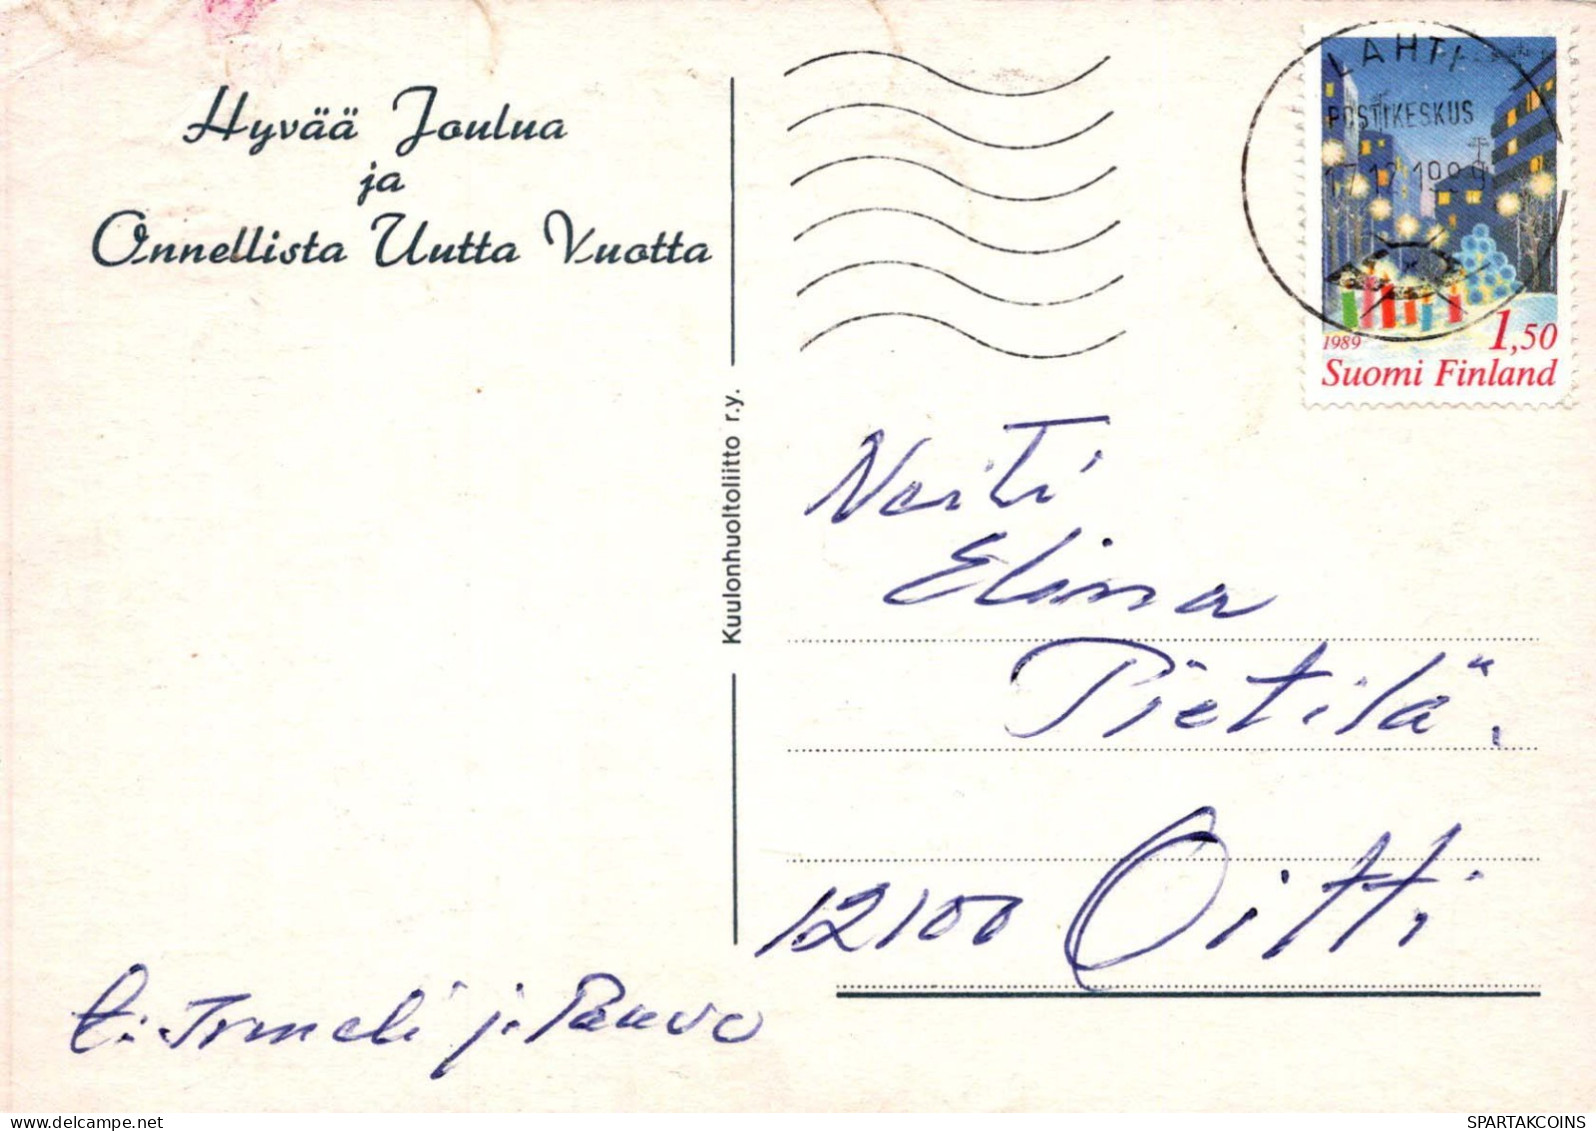 Hyvää Joulua
ja
Onnellista Uutta Vuotta
LAHTI
POSTIKESKUS
17.12.1989
1989 1,50
Suomi Finland
Kuulonhuoltoliitto r.y.
Neiti
Elina
Pietilä.
12100 Oitti
t. Irmeli j. Paavo
delcampe.net
SPARTAKCOINS